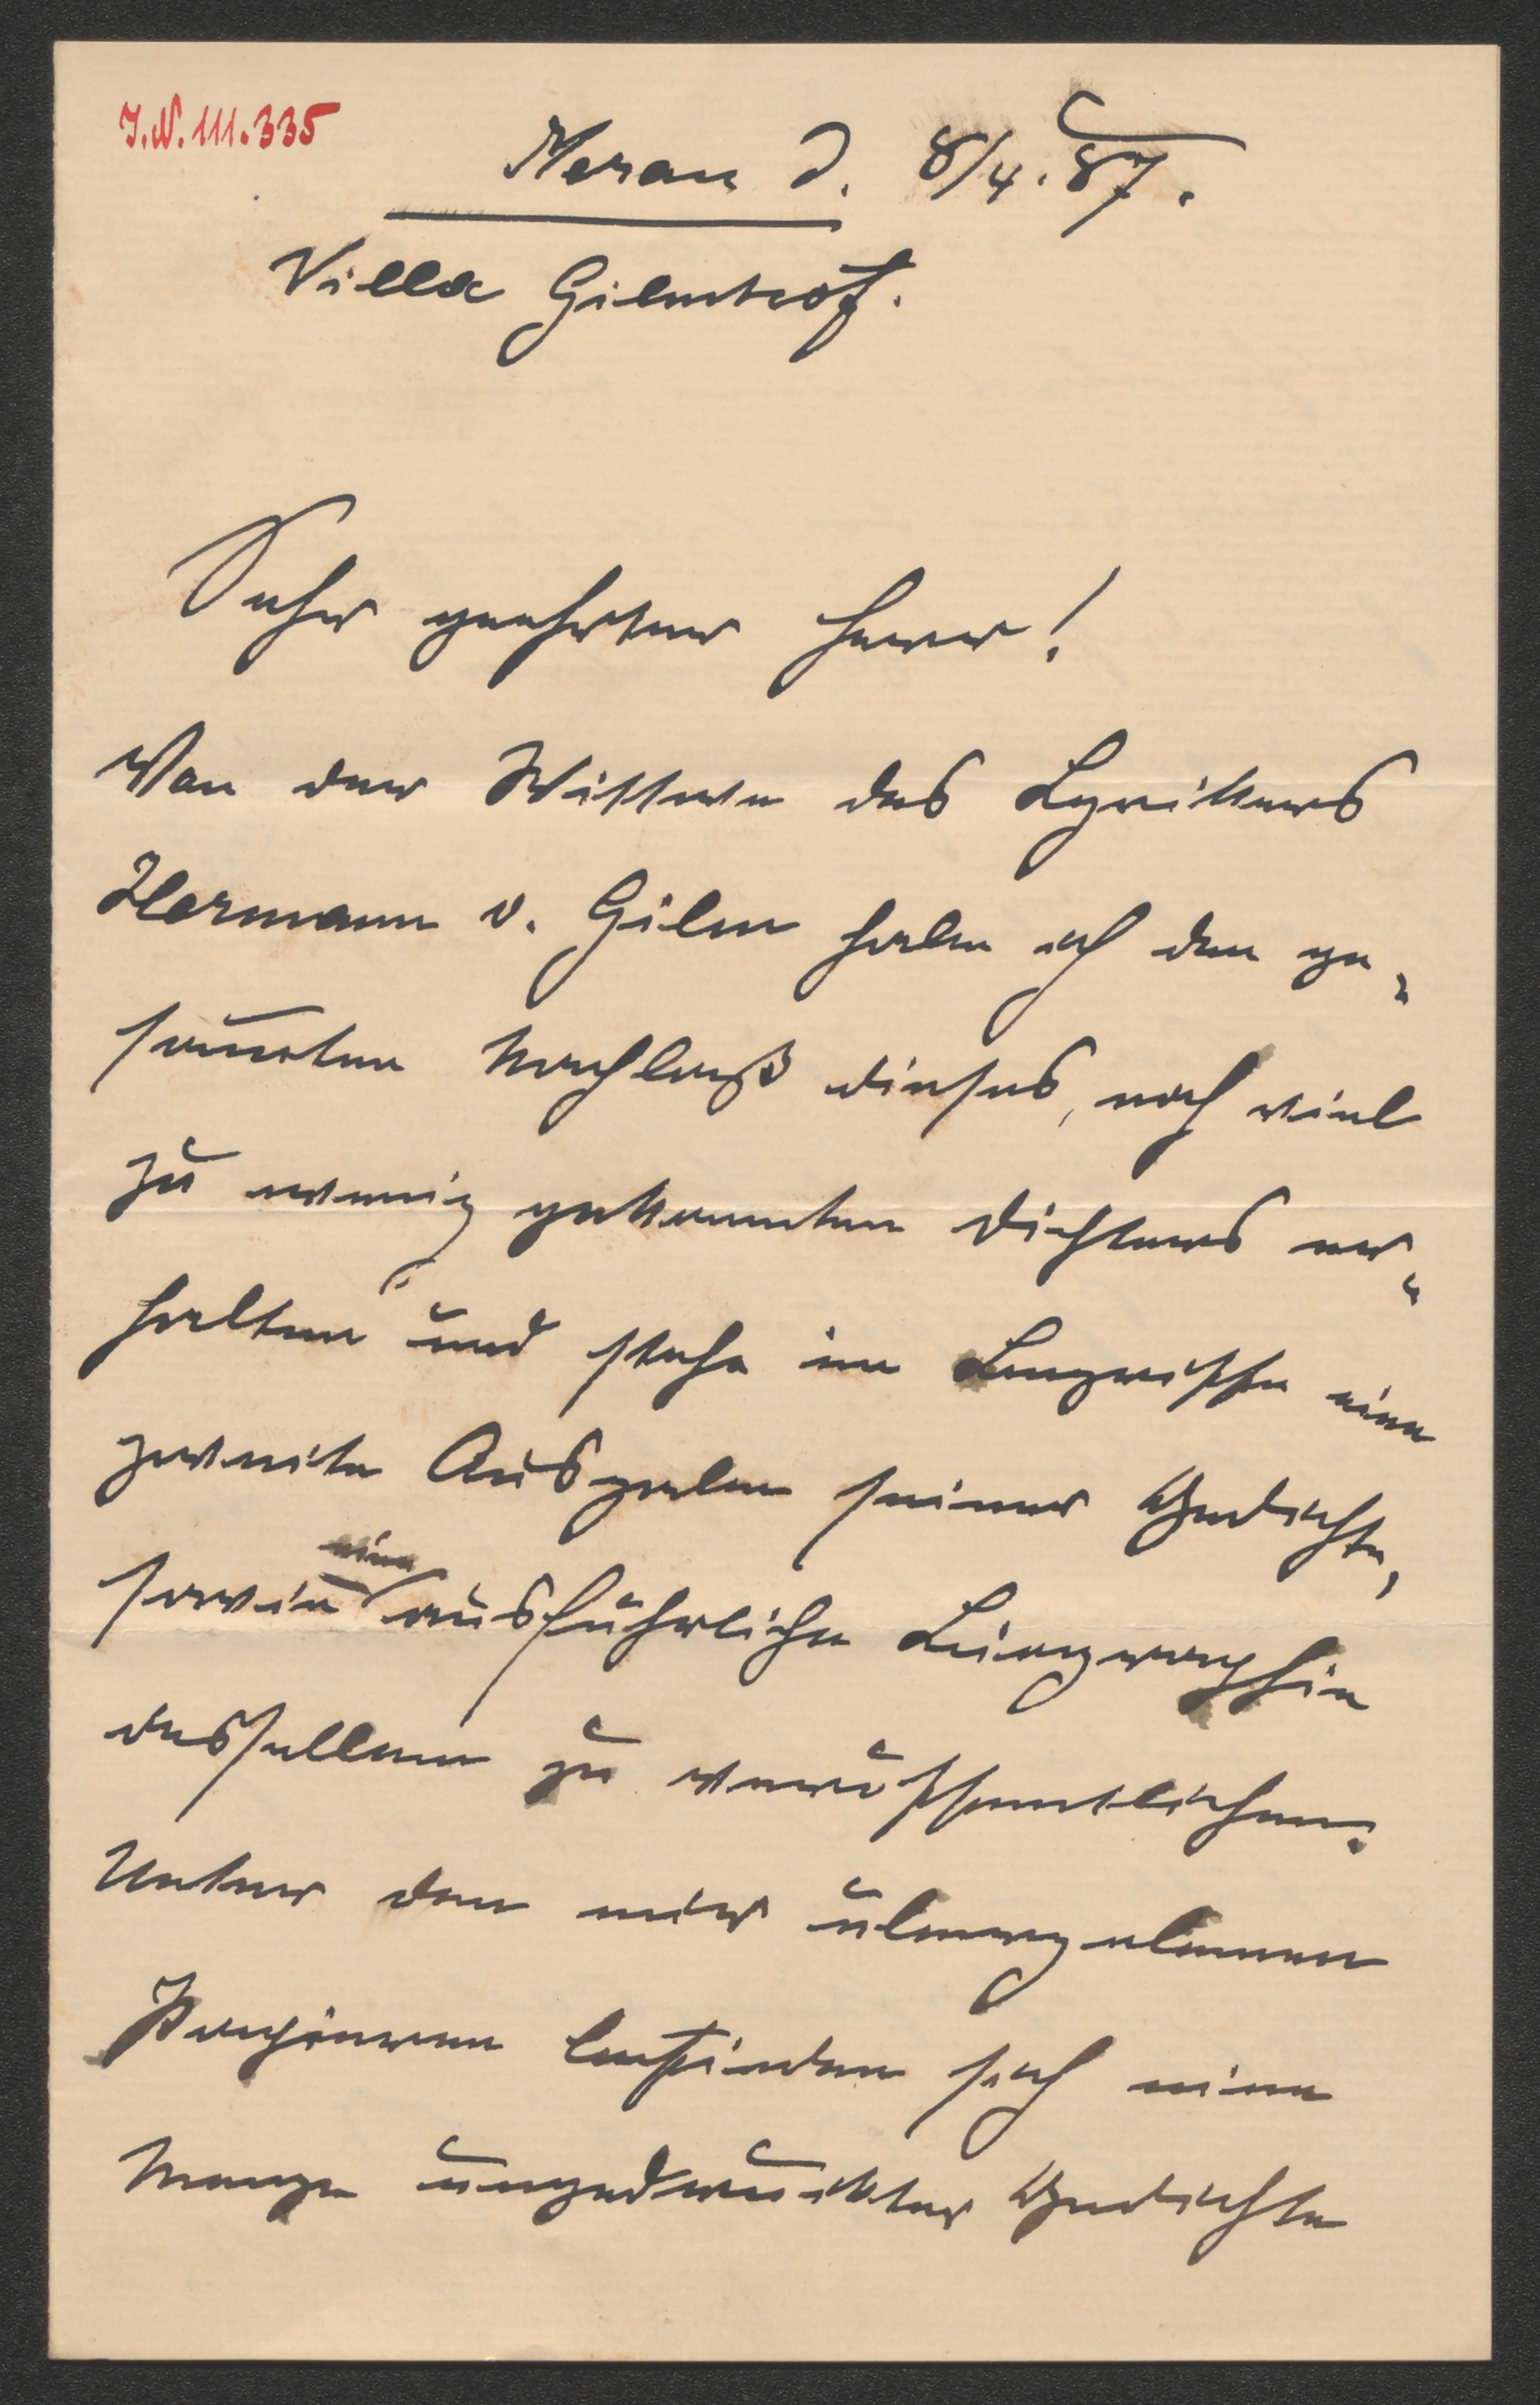 J.N. 111.335
Meran d. 8/4. 87.
Villa Gilmhof.
Sehr geehrter Herr!
Von der Wittwe des Lyrikers
Hermann v. Gilm habe ich den ge-
samten Nachlaß dieses, noch viel
zu wenig gekannten Dichters er-
halten und stehe im Begriffe eine
zweite Ausgabe seiner Gedichte,
sowie eine ausführliche Biographie
desselben zu veröffentlichen.
Unter den mir übergebenen
Papieren befinden sich eine
Menge ungedruckter Gedichte